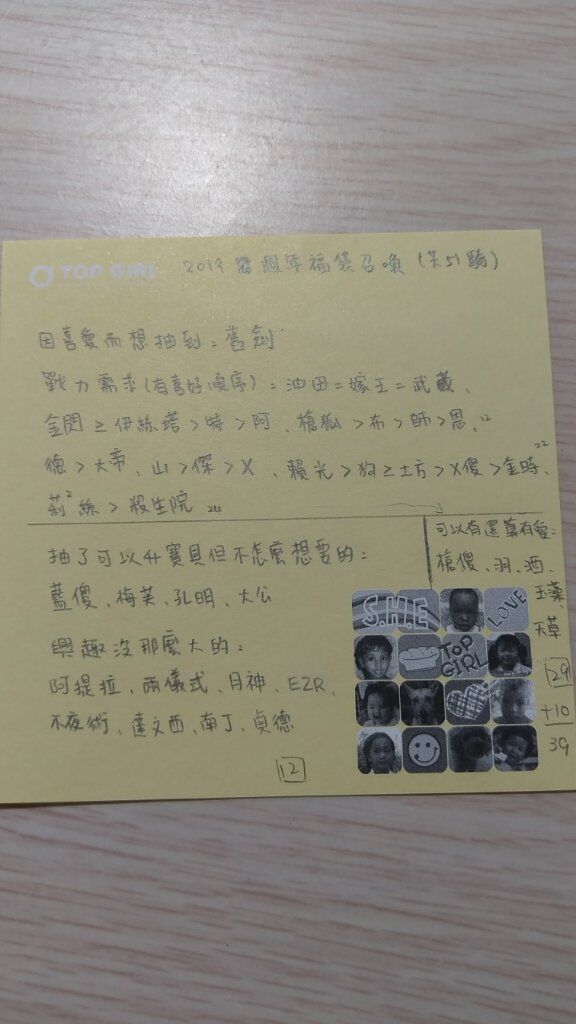 TOP GIRL 2019 週年福袋召喚(共51騎)
因喜愛而想抽到:舊劍
戰力需求(有喜好順序)=沖田=嫁王=武藏、
金閃≥伊絲塔>特>阿、槍狐>布>師>恩、12
德>大帝、山>傑>X、賴光>狗≥土方>X傻>金時、22
莉絲>殺生院 24
抽了可以4寶貝但不怎麼想要的:
藍傻、梅芙、孔明、大公
興趣沒那麼大的:
阿提拉、兩儀式、月神、EZR、
不夜術、達文西、南丁、貞德
12
可以有還算有愛:
槍傻、羽、酒、
玉藻、
天草
29
+10
39
S.H.E
LOVE
TOP GIRL